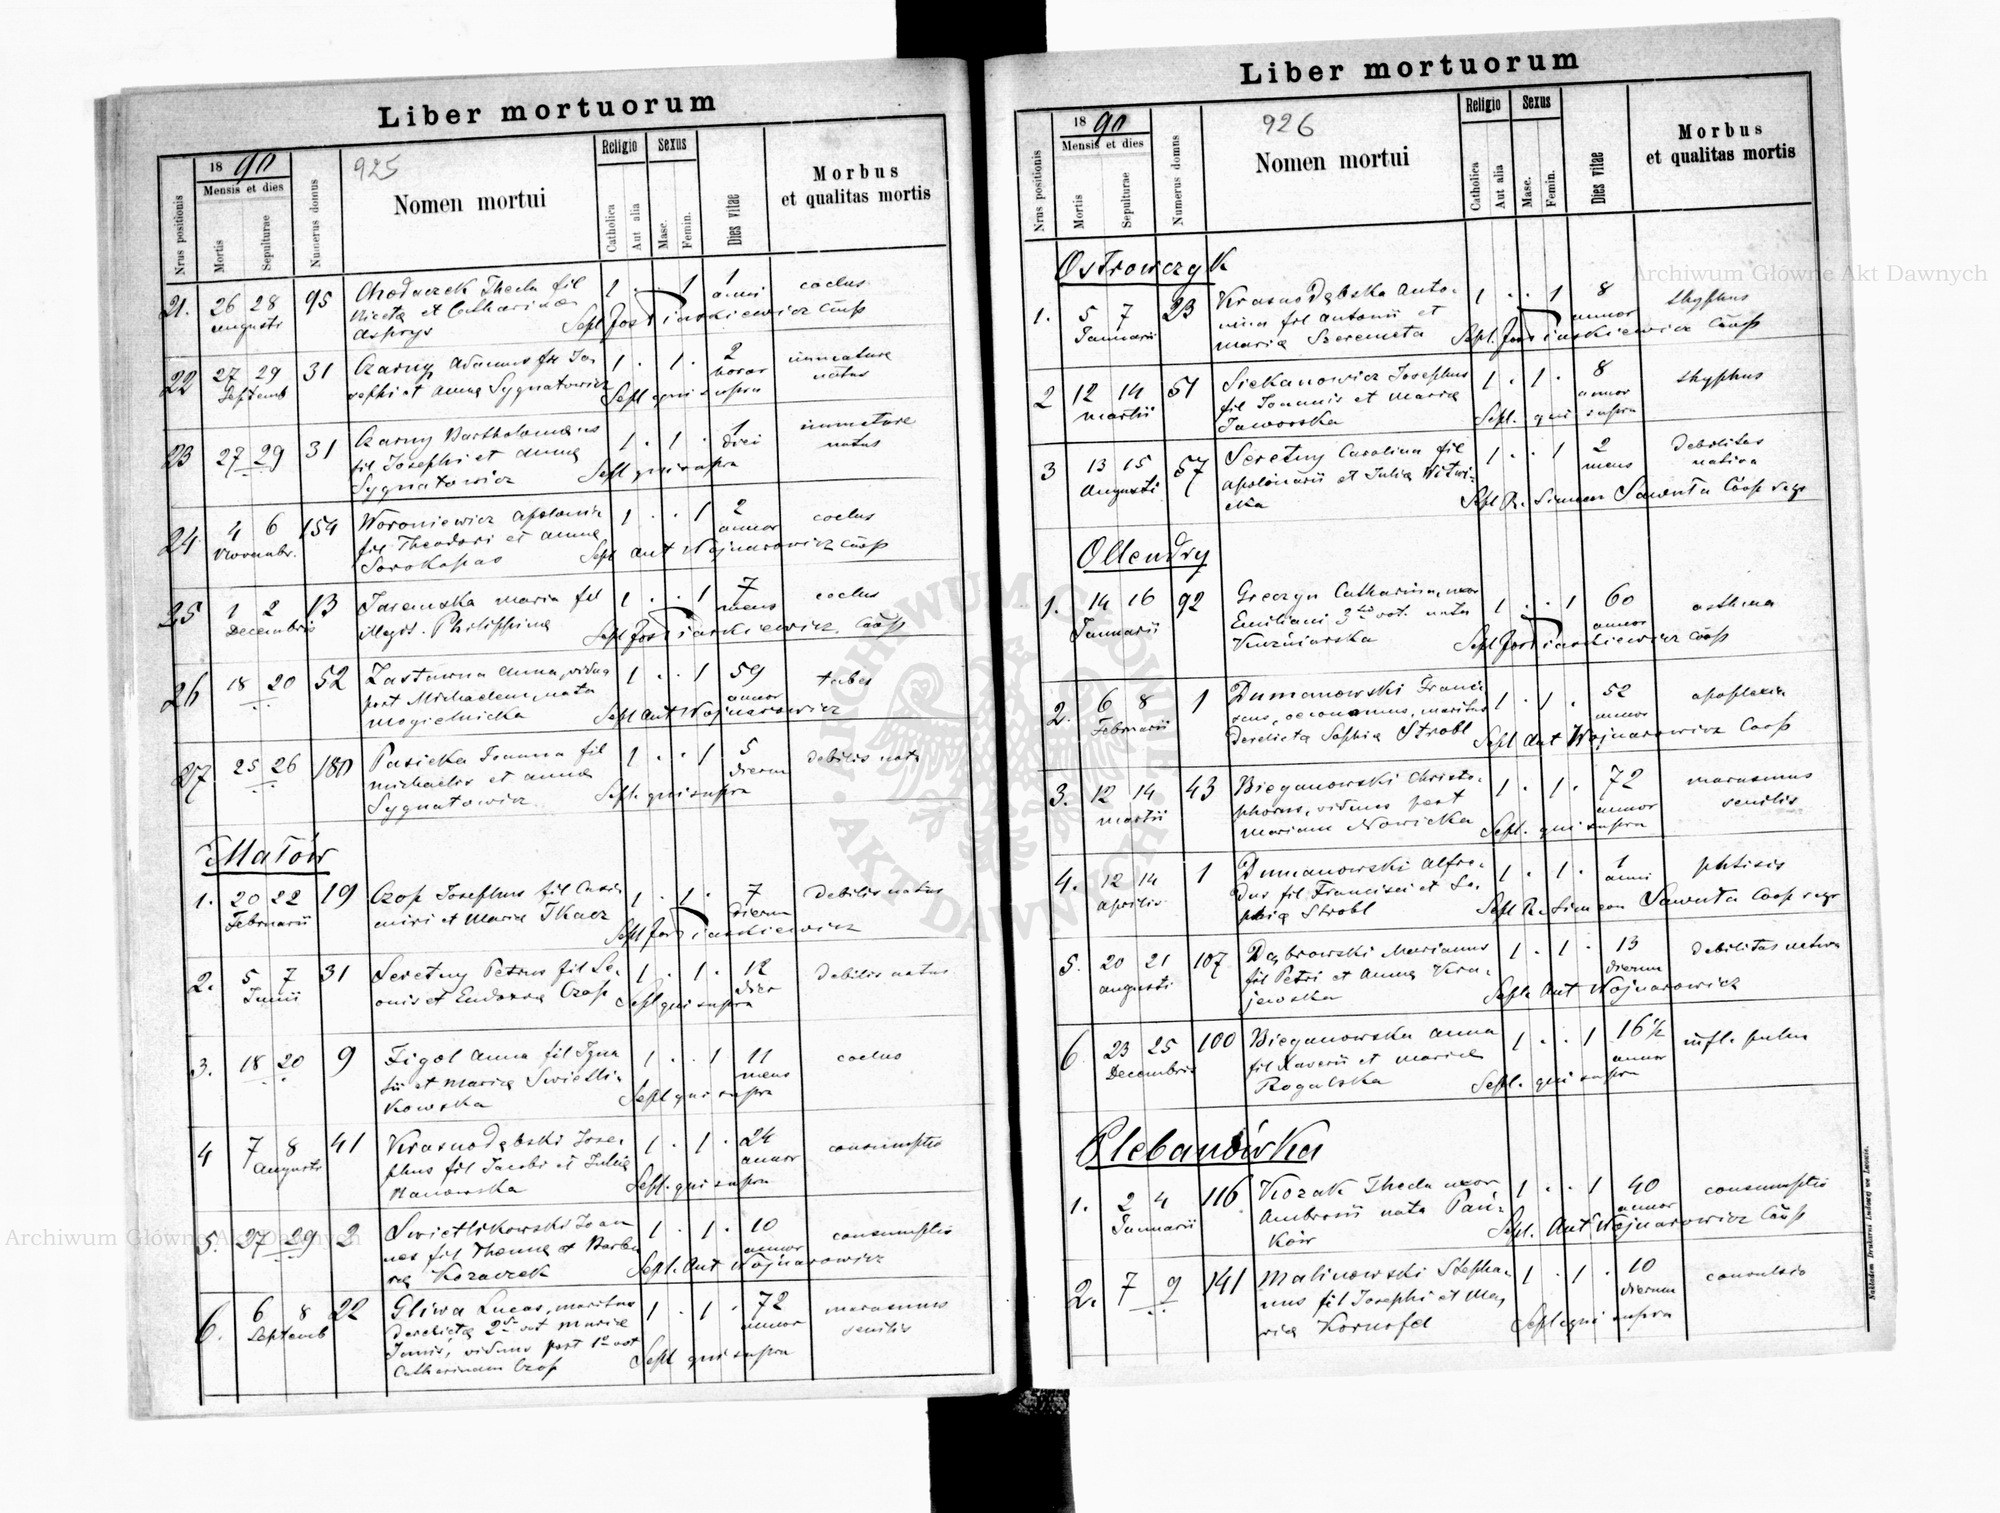 Liber mortuorum
Nrus positionis
1890
Mensis et dies
Mortis
Sepulturae
Numerus domus
925
Nomen mortui
Religio
Catholica
Aut alia
Sexus
Masc.
Femin.
Dies vitae
Morbus
et qualitas mortis
21. 26 28 95 Thecla fil 1 . . 1 1 coelus
augusti et Catharinae anni
22 27 29 31 Czarny Adamus fil Jo- 1 . 1 . 2 immature
Septemb sephi et Anna Sygnatowicz horar natus
Sepl qui supra
23 27 29 31 Czarny Bartholomaeus 1 . 1 . 1 immature
fil Josephi et Anna diei natus
Sygnatowicz Sepl qui supra
24. 4 6 154 Woroniewicz Apolonia 1 . . 1 2 coelus
Novembr. fil Theodori et Anna annor
Sorokapas Sepl Ant Wojnarowicz Coop
25 1 2 13 Jaremska Maria fil 1 . . 1 7 coelus
Decembris illegit. Philippina mens
26 18 20 52 Zastawna Anna, vidua 1 . . 1 59 tabes
post Michaelem, nata annor
Mogielnicka Sepl Ant Wojnarowicz
27 25 26 180 Pasicka Joanna fil 1 . . 1 5 debilis nata
Michaelis et Anna dierum
Sygnatowicz Sepl. qui supra
Małów
1. 20 22 19 Czop Josephus fil Casi- 1 . 1 . 7 Debilis natus
Februarii miri et Maria Tkacz dierum
2. 5 7 31 Seretny Petrus fil Le- 1 . 1 . 12 Debilis natus
Junii onis et Eudoxia Czop dier
Sepl qui supra
3. 18 20 9 Figol Anna fil Igna 1 . . 1 11 coelus
tii et Maria Swietli- mens
kowska Sepl qui supra
4 7 8 41 Krasnodębski Jose- 1 . 1 . 24 consumptio
Augusti phus fil Jacobi et Julia annor
Nanowska Sepl. qui supra
5. 27 29 2 Swietlikowski Joan 1 . 1 . 10 consumptio
nes fil Thoma et Barba annor
ra Kozaczek Sepl. Ant Wojnarowicz
6. 6 8 22 Gliwa Lucas, maritus 1 . 1 . 72 marasmus
Septemb derelicta 2do vot Maria annor senilis
viduus post 1o vot
Catharinam Czop Sepl qui supra
Liber mortuorum
Nrus positionis
1890
Mensis et dies
Mortis
Sepulturae
Numerus domus
926
Nomen mortui
Religio
Catholica
Aut alia
Sexus
Masc.
Femin.
Dies vitae
Morbus
et qualitas mortis
Ostrowczyk
1. 5 7 23 Krasnodębska Anto- 1 . . 1 8 thyphus
Januarii nina fil Antonii et annor
Maria Szeremeta
2 12 14 51 Siekanowicz Josephus 1 . 1 . 8 thyphus
Martii fil Joannis et Maria annor
Jaworska Sepl. qui supra
3 13 15 57 Seretny Carolina fil 1 . . 1 2 debilitas
Augusti Apolinarii et Julia Witwi- mens nativa
cka Sepl R. Simeon Sawuta Coop
Ollendry
1. 14 16 92 Greczyn Catharina, uxor 1 . . 1 60 asthma
Januarii Emiliani 3tio vot. nata annor
Kuzniarska
2. 6 8 1 Dumanowski Franci- 1 . 1 . 52 apoplexia
Februarii scus, oeconomus, maritus annor
derelicta Sophia Strobl Sepl Ant Wojnarowicz Coop
3. 12 14 43 Bieganowski Christo- 1 . 1 . 72 marasmus
Martii phorus, viduus post annor senilis
Mariam Nowicka Sepl. qui supra
4. 12 14 1 Dumanowski Alfre- 1 . 1 . 1 phtisis
Aprilis dus fil Francisci et So- anni
phia Strobl Sepl R. Simeon Sawuta Coop
5. 20 21 107 Dąbrowski Marianus 1 . 1 . 13 debilitas nativa
augusti fil Petri et Anna Kra- dierum
jewska Sepl. Ant Wojnarowicz
6 23 25 100 Bieganowska Anna 1 . . 1 16½ infl. pulm
Decembris fil Xaverii et Maria annor
Rogalska Sepl. qui supra
Plebanówka
1. 2 4 116 Kozak Thecla uxor 1 . . 1 40 consumptio
Januarii Ambrosii nata Pań- annor
ków Sepl. Ant Wojnarowicz Coop
2. 7 9 141 Malinowski Stepha- 1 . 1 . 10 convulsio
nus fil Josephi et Ma- dierum
ria Kornafel Sepl qui supra
Nakładem Drukarni Ludowej we Lwowie.
Archiwum Główne Akt Dawnych
Archiwum Główne Akt Dawnych
ARCHIWUM GŁÓWNE
AKT DAWNYCH